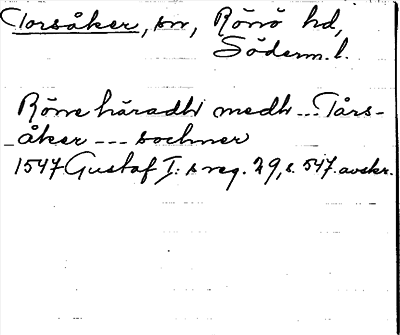 Torsåker, sn, Rönö hd,
Söderm. l.
Röne häradh medh ... Tårs-
-åker --- sochner
1547 Gustaf I:s reg. 29, s. 547. avskr.